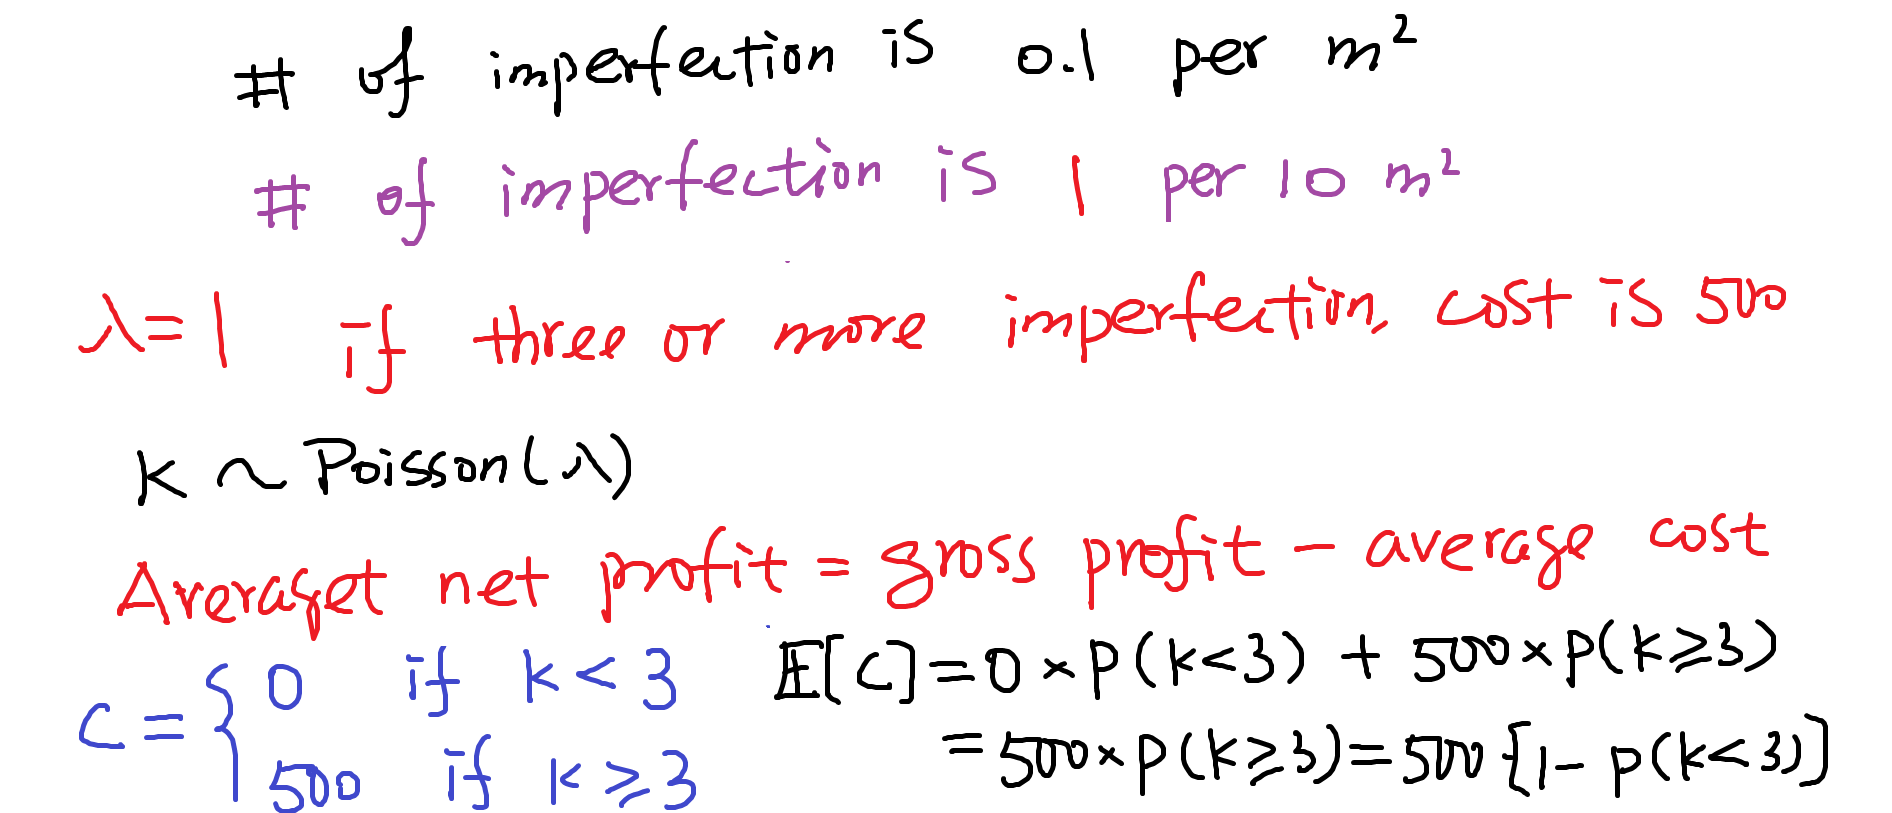 # of imperfection is 0.1 per m²
# of imperfection is 1 per 10 m²
λ=1 if three or more imperfection, cost is 500
K ~ Poisson(λ)
Averaget net profit = gross profit - average cost
C = { 0 if K < 3
500 if K ≥ 3
E[C] = 0 × P(K<3) + 500 × P(K≥3)
= 500 × P(K≥3) = 500 {1 - P(K<3)]